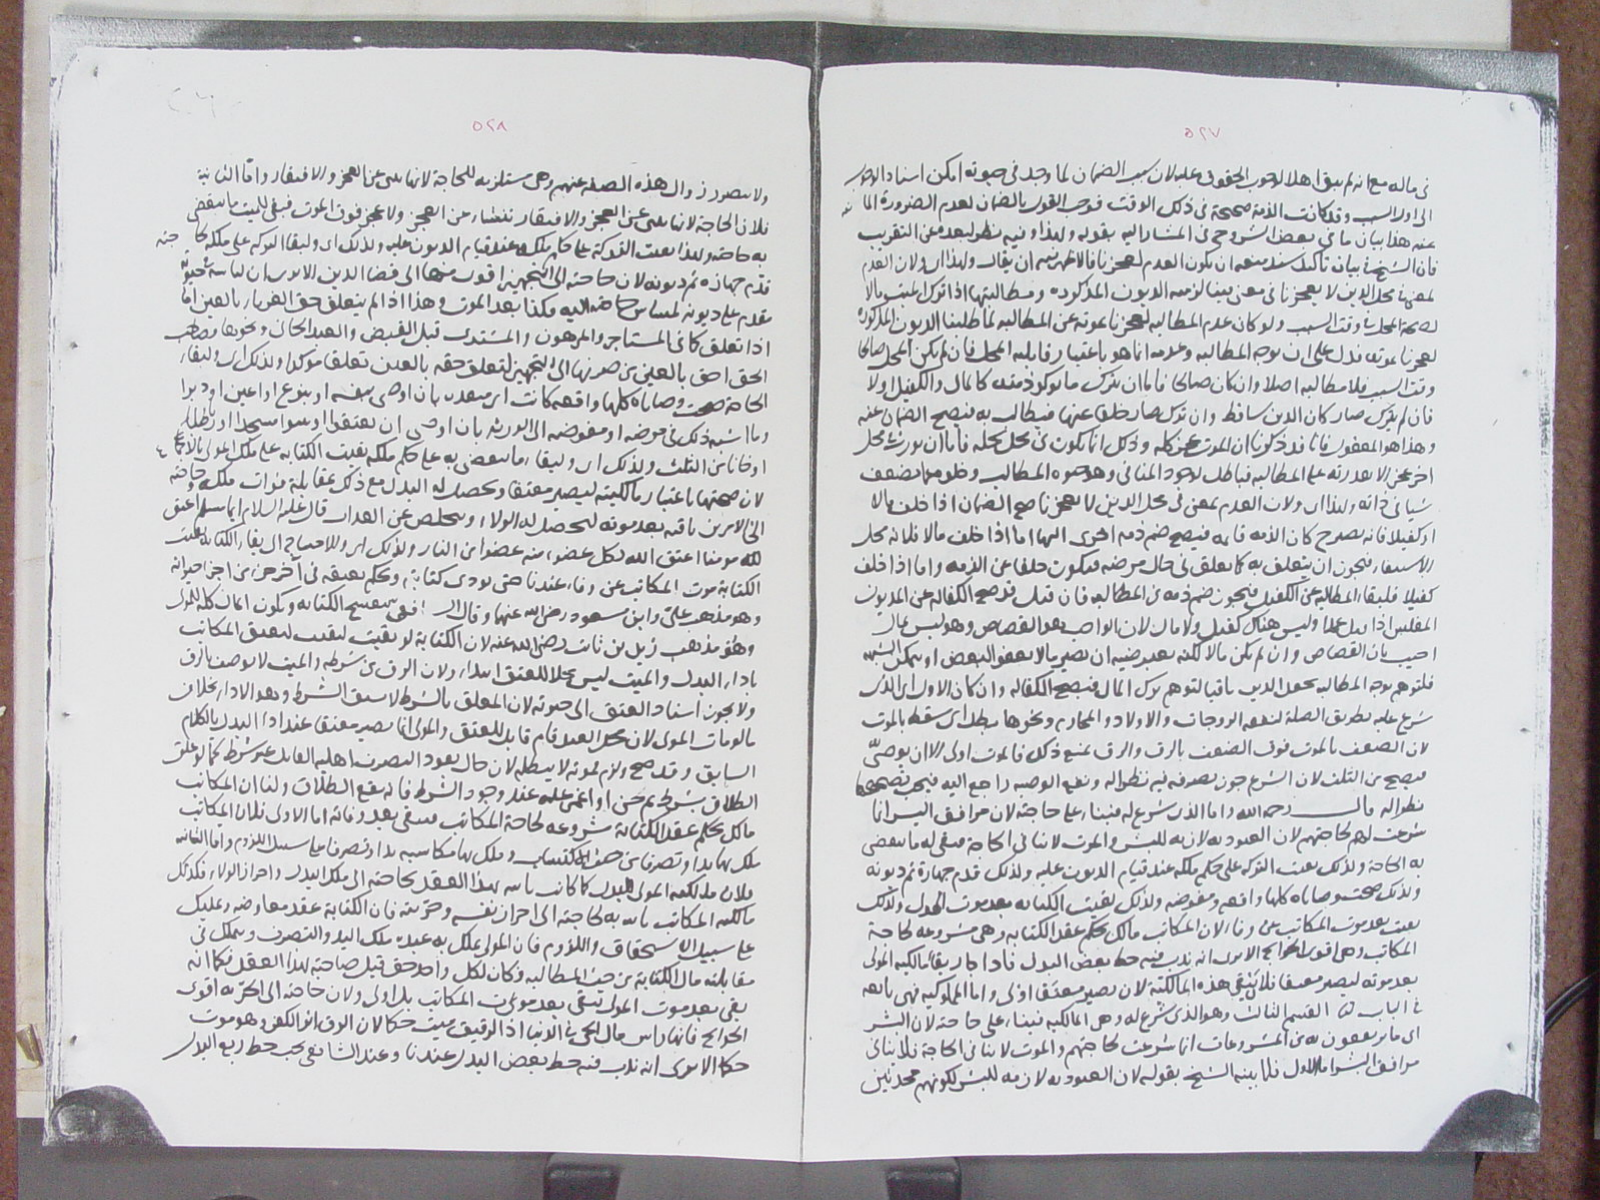 ٥٢٧
في ماله مع انه لم يبق اهلا لوجوب الحقوق عليه لان سبب الضمان لما وجد في حيوته امكن اسناد الوجوب
الى اول السبب وقد كانت الذمة صحيحة في ذلك الوقت فوجب القول بالضمان لعدم الضرورة
عنه هذا بيان ما في بعض الشروح في المشار اليه بقوله ولهذا وفيه نظر لبعده عن التقريب
فان الشيخ في بيان تأكيد
لصحة المحل في وقت السبب ولو كان عدم المطالبة لعجزنا بموته عن المطالبة لما طلبنا الديون المذكورة
لعجزنا بموته فدل على ان توجه المطالبة وعدمه انما هو باعتبار قابلية المحل فان لم يكن المحل صالحا
وقت السبب فلا مطالبة اصلا وان كان صالحا فاما ان يترك ما يؤكد ذمته كالمال والكفيل اولا
فان لم يترك صار كان الدين ساقط وان ترك صار خلفا عنها فيطالب به فيصح الضمان عنه
وهذا هو المعقول
شيا في ذاته ولهذا اى ولان العدم لمعنى في محل الدين لا لعجزنا صح الضمان اذا خلف مالا
او كفيلا فانه يصرح كان الذمة قائمة فيصح ضم ذمة اخرى اليها اما اذا خلف مالا فلانه محل
الاستيفاء فيجوز ان يتعلق به كما تعلق في حال مرضه فيكون خلفا عن الذمة واما اذا خلف
كفيلا فلبقاء المطالبة عن الكفيل فيجوز ضم ذمة في المطالبة فان قيل قد صح الكفالة عن المديون
المفلس اذا وليس هناك كفيل ولا مال لان الواجب هو القصاص وهو ليس بمال
اجيب بان القصاص وان لم يكن مالا لكنه بعرضية ان يصير مالا بعفو البعض او بتمكن الشبهة
فلتوهم توجه المطالبة
شرع عليه بطريق الصلة كنفقة الزوجات والاولاد والمحارم ونحوها بطل اى سقط بالموت
لان الضعف بالموت فوق الضعف بالرق والرق يمنع ذلك فالموت اولى الا ان يوصى
فيصح من الثلث لان الشرع جوز تصرفه فيه نظرا له ونفع الوصية راجع اليه فيجب تصحيحها
نظرا له قال رحمه الله واما الذى شرع له فبناء على حاجته لان مرافق البشر انما
شرعت لهم لحاجتهم لان العبودية لازمة للبشر والموت لا ينافي الحاجة فيبقى له ما ينقضى
به الحاجة ولذلك بقيت التركة على حكم ملكه عند قيام الديون عليه ولذلك قدم جهازه ثم ديونه
ولذلك صحت وصاياه كلها واقعة ومفوضة ولذلك بقيت الكتابة بعد موت المولى ولذلك
بقيت بعد موت المكاتب عن وفاء لان المكاتب مالك بحكم عقد الكتابة وهى مشروعة لحاجة
المكاتب وهى اقوى الحوائج الا يرى انه ندب فيه حط بعض البدل فاذا جاز بقاء مالكية المولى
بعد موته ليصير معتقا فلان تبقى هذه المالكية لان يصير معتقا اولى واما المملوكية فهى تابعة
في الباب هذا القسم الثالث وهو الذى شرع له وهى المالكية فبناء على حاجته لان البشر
اى ما يرتفقون به من المشروعات انما شرعت لحاجتهم والموت لا ينافي الحاجة فلا ينافي
مرافق البشر اما الاول فلما بينه الشيخ بقوله لان العبودية لازمة للبشر لكونهم محدثين
٥٢٨
ولا يتصور زوال هذه الصفة عنهم وهى مستلزمة للحاجة لانها تنبئ عن العجز والافتقار واما الثانية
فلان الحاجة لانها تنبئ عن العجز والافتقار تنشاء من العجز ولا عجز فوق الموت فبقى للميت ما ينقضى
به حاجته ولهذا بقيت التركة على حكم ملكه عند قيام الديون عليه ولذلك اى ولبقاء التركة على حكم ملكه لحاجته
قدم جهازه ثم ديونه لان حاجته الى التجهيز اقوى منها الى قضاء الدين الا يرى ان لباسه في حيوته
مقدم على ديونه لمساس حاجته اليه فكذا بعد الموت وهذا اذا لم يتعلق حق الغير بالعين اما
اذا تعلق كما في المستأجر والمرهون والمشترى قبل القبض والعبد الجانى ونحوها فصاحب
الحق احق بالعين من صرفها الى التجهيز لتعلق حقه بالعين تعلقا مؤكدا ولذلك اى ولبقاء
الحاجة صحت وصاياه كلها واقعة كانت اى منفذة بان اوصى بنفسه او بنوع او اعتق او دبر
وما اشبه ذلك في مرضه او مفوضة الى الورثة بان اوصى ان يعتقوا او يبنوا مسجدا او رباطا
او خانا من الثلث ولذلك اى ولبقاء ما ينقضى به على حكم ملكه بقيت الكتابة على ملك المولى بالاجماع
لان صحتها باعتبار مالكيته ليصير معتقا ويحصل له البدل مع ذلك بمقابلة فوات ملكه وحاجته
الى الامرين باقية بعد موته ليحصل له الولاء ويتخلص عن العذاب قال عليه السلام ايما مسلم اعتق
لله مومنا اعتق الله بكل عضو منه عضوا من النار ولذلك اى وللاحتياج الى بقاء الكتابة بقيت
الكتابة بموت المكاتب عن وفاء عندنا حتى تؤدى كتابته ويحكم بعتقه في آخر جزء من اجزاء حيوته
وهو مذهب علي وابن مسعود رضى الله عنهما وقال الشافعى تنفسخ الكتابة ويكون المال كله للمولى
وهو مذهب زيد بن ثابت رضى الله عنه لان الكتابة لو بقيت لبقيت لتعتق المكاتب
باداء البدل والميت ليس محلا للعتق ابتداء ولان الرق من شرطه والميت لا يوصف بالرق
ولا يجوز اسناد العتق الى حيوته لان المعلق بالشرط لا يسبق الشرط وهو الاداء بخلاف
ما لو مات المولى لان محل العبد قائم قابل للعتق والمولى انما يصير معتقا عند اداء البدل بالكلام
السابق وقد صح ولزم بموته لا يبطله لان حال وجود التصرف اهلية القائل عند شرط كما لو علق
الطلاق بشرط ثم جن او اغمى عليه عند وجود الشرط فانه يقع الطلاق ولنا ان المكاتب
مالك بحكم عقد الكتابة مشروعة لحاجة المكاتب فتبقى بعد وفاته اما الاولى فلان المكاتب
ملك بها يدا وتصرفا من حيث الاكتساب وملك بها مكاسبه يدا وتصرفا على سبيل اللزوم واما الثانية
فلان مالكية المولى للبدل كما كانت ماسة بهذا العقد لحاجته الى ملك البدل واحراز الولاء فكذلك
مالكية المكاتب ماسة به لحاجته الى احراز نفسه وحريته فان الكتابة عقد معاوضة وتمليك
على سبيل الاستحقاق واللزوم فان المولى يملك به عبده ملك اليد والتصرف ويملك في
مقابلته مال الكتابة من حيث المطالبة فكان لكل واحد حق قبل صاحبه بهذا العقد فكما انه
يبقى بعد موت المولى تبقى بعد موت المكاتب بل اولى ولان حاجته الى الحرية اقوى
الحوائج فانها راس مال الحى في الدنيا اذ الرقيق ميت حكما لان الرق اثر الكفر وهو موت
حكما الا يرى انه ندب فيه حط بعض البدل عندنا وعند الشافعى يجب حط ربع البدل